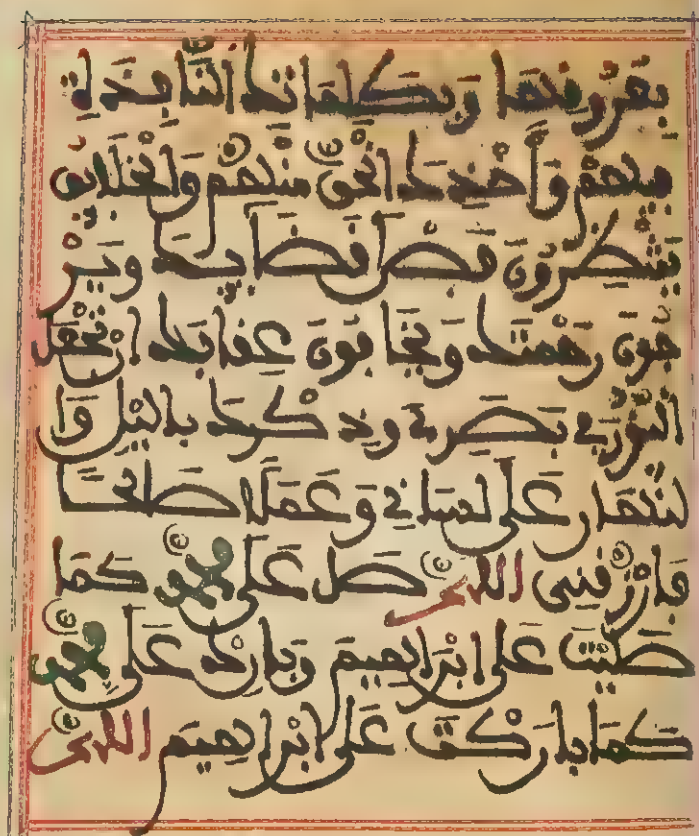 بعروقها وبكلماتك النافذة
فيهم وأخذك الحق منهم والخلائق
ينتظرون فصل قضائك وير
جون رحمتك ويخافون عقابك ان تجعل
النور في بصري وذكرك باليل وا
لنهار على لساني وعملا صالحا
فارزقني اللهم صل على محمد كما
صليت على ابراهيم وبارك على محمد
كما باركت على ابراهيم اللهم